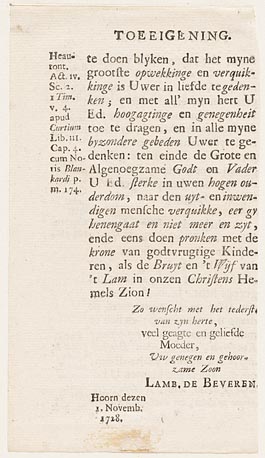 TOEEIGENING.
Heau-
tont.
Act. IV.
Sc. 2.
1 Tim.
v. 4.
apud
Curtium
Lib. III.
Cap. 4.
cum No-
ris Blan-
kardi p.
m. 174.
te doen blyken, dat het myne
grootste opwekkinge en verquik-
kinge is Uwer in liefde tegeden-
ken; en met all' myn hert U
Ed. hoogagtinge en genegenheit
toe te dragen, en in alle myne
byzondere gebeden Uwer te ge-
denken: ten einde de Grote en
Algenoegzame Godt en Vader
U Ed. sterke in uwen hogen ou-
derdom, naar den uyt- en inwen-
digen mensche verquikke, eer gy
henengaat en niet meer en zyt,
ende eens doen pronken met de
krone van godtvrugtige Kinde-
ren, als de Bruyt en 't Wyf van
't Lam in onzen Christens He-
mels Zion!
Zo wenscht met het tederst.
van zyn herte,
veel geagte en geliefde
Moeder,
Uw genegen en gehoor-
zame Zoon
LAMB. DE BEVEREN.
Hoorn dezen
1. Novemb.
1728.